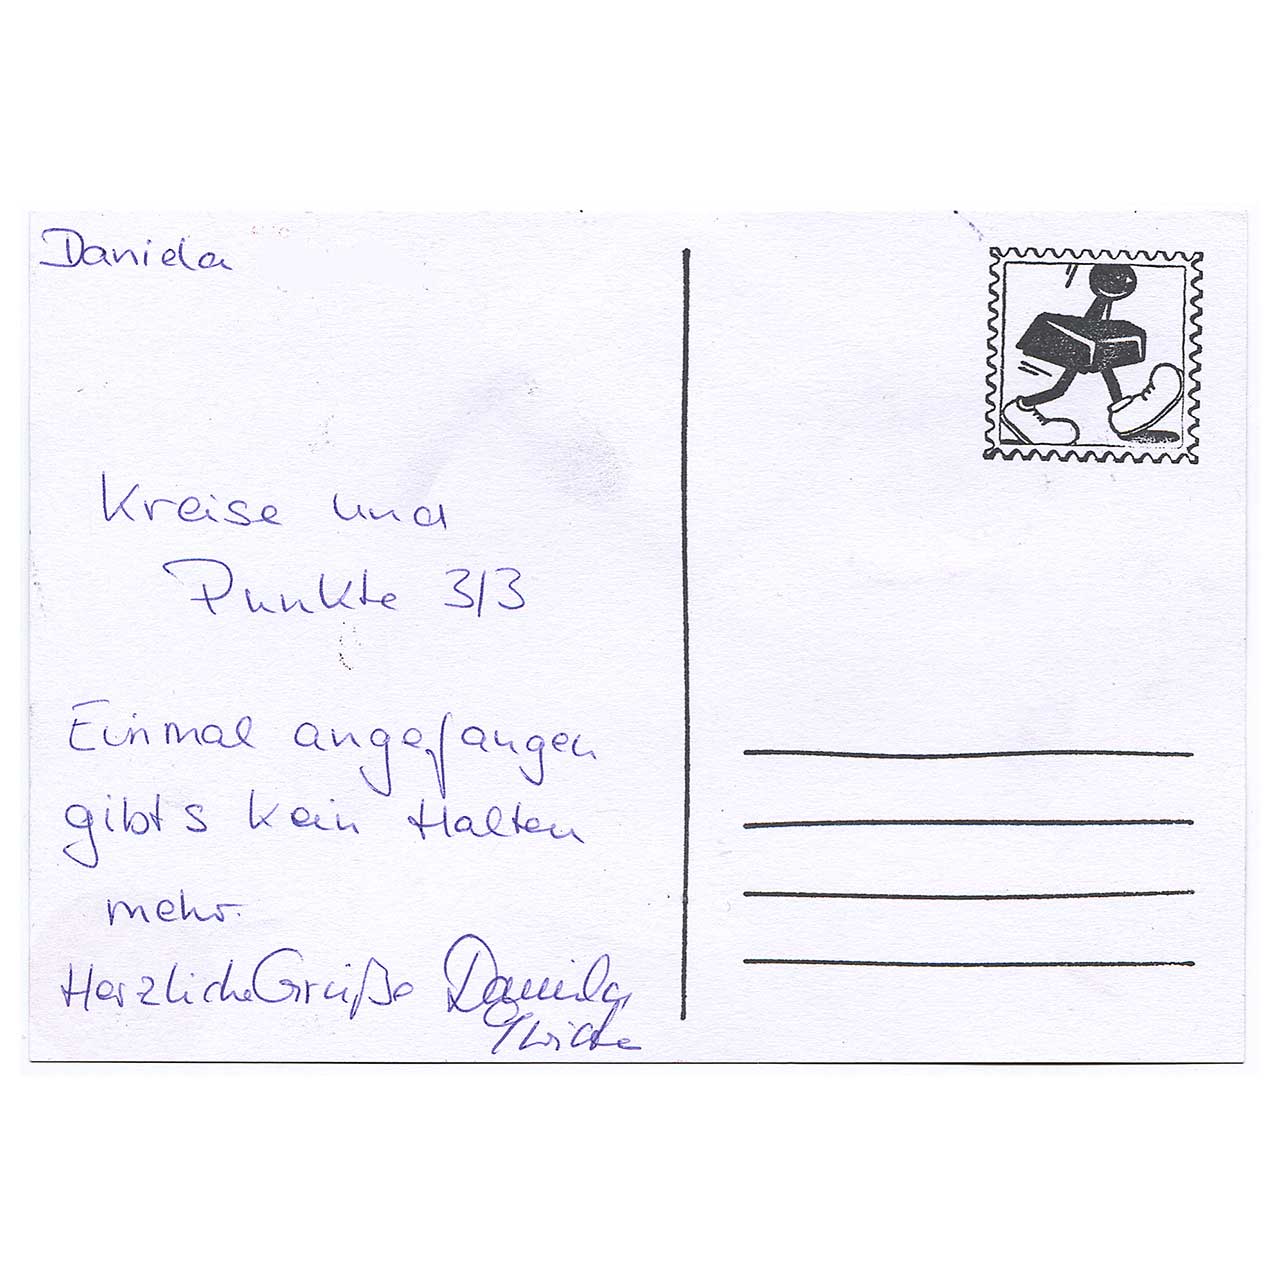 Daniela
Kreise und
Punkte 3/3
Einmal angefangen
gibt's kein Halten
mehr.
Herzliche Grüße Daniela